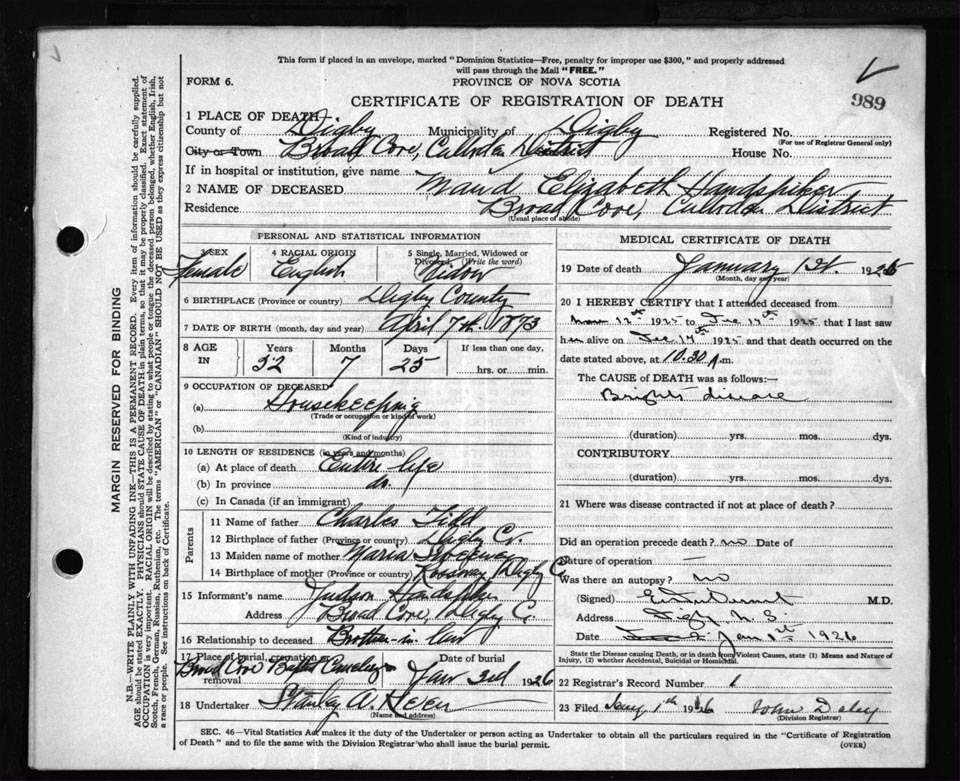 This form if placed in an envelope, marked "Dominion Statistics—Free, penalty for improper use $300," and properly addressed
will pass through the Mail "FREE."
FORM 6.
PROVINCE OF NOVA SCOTIA
CERTIFICATE OF REGISTRATION OF DEATH
989
1 PLACE OF DEATH
County of Digby Municipality of Digby Registered No.
(For use of Registrar General only)
City or Town Broad Cove, District House No.
If in hospital or institution, give name
2 NAME OF DECEASED Maud Elizabeth Handspiker
Residence Broad Cove, District
(Usual place of abode)
PERSONAL AND STATISTICAL INFORMATION
3 SEX Female
4 RACIAL ORIGIN English
5 Single, Married, Widowed or Divorced (Write the word) Widow
6 BIRTHPLACE (Province or country) Digby County
7 DATE OF BIRTH (month, day and year) April 7th 1873
8 AGE IN Years 52 Months 7 Days 25 If less than one day, hrs. or min.
9 OCCUPATION OF DECEASED
(a) Housekeeping
(Trade or occupation or kind of work)
(b)
(Kind of industry)
10 LENGTH OF RESIDENCE (in years and months)
(a) At place of death Entire life
(b) In province do.
(c) In Canada (if an immigrant)
Parents
11 Name of father Charles
12 Birthplace of father (Province or country) Digby Co.
13 Maiden name of mother Maria
14 Birthplace of mother (Province or country) Digby Co
15 Informant's name Judson Handspiker
Address Broad Cove, Digby C.
16 Relationship to deceased Brother-in law
17 Place of burial, cremation or removal Broad Cove Baptist Cemetery
Date of burial Jan 3rd 1926
18 Undertaker Stanley A.
(Name and address)
MEDICAL CERTIFICATE OF DEATH
19 Date of death January 1st. 1926
(Month, day and year)
20 I HEREBY CERTIFY that I attended deceased from
12th 1925 to Dec 14th 1925 that I last saw
h alive on Dec 14th 1925 and that death occurred on the
date stated above, at 10.30 m.
The CAUSE OF DEATH was as follows:—
Brights disease
(duration) yrs. mos. dys.
CONTRIBUTORY
(duration) yrs. mos. dys.
21 Where was disease contracted if not at place of death?
Did an operation precede death? no Date of
Nature of operation
Was there an autopsy? no
(Signed) M.D.
Address Digby N.S.
Date Jan 1st 1926
State the Disease causing Death, or in death from Violent Causes, state (1) Means and Nature of
Injury, (2) whether Accidental, Suicidal or Homicidal.
22 Registrar's Record Number 1
23 Filed Jany 1th 1926 John Daley
(Division Registrar)
SEC. 46—Vital Statistics Act makes it the duty of the Undertaker or person acting as Undertaker to obtain all the particulars required in the "Certificate of Registration
of Death" and to file the same with the Division Registrar who shall issue the burial permit.
(OVER)
MARGIN RESERVED FOR BINDING
N.B.—WRITE PLAINLY WITH UNFADING INK—THIS IS A PERMANENT RECORD. Every item of information should be carefully supplied.
AGE should be stated EXACTLY. PHYSICIANS should STATE CAUSE OF DEATH in plain terms, so that it may be properly classified. Exact statement of
OCCUPATION is very important. RACIAL ORIGIN will be described by stating to what people or tongue the deceased person belonged, whether English, Irish,
Scotch, French, German, Russian, Ruthenian, etc. The terms "AMERICAN" or "CANADIAN" SHOULD NOT BE USED as they express citizenship but not
a race or people. See instructions on back of Certificate.